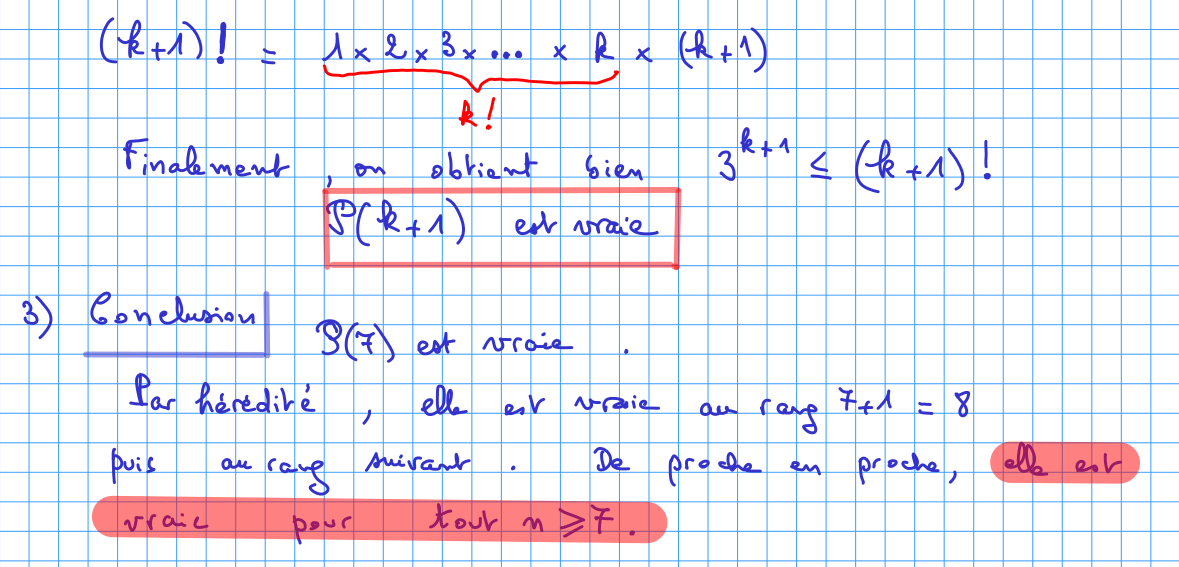 (k+1)! = 1 × 2 × 3 × ... × k × (k+1)
k!
Finalement, on obtient bien 3^{k+1} ≤ (k+1)!
P(k+1) est vraie
3) Conclusion
P(7) est vraie.
Par hérédité, elle est vraie au rang 7+1 = 8
puis au rang suivant. De proche en proche, elle est
vraie pour tout n ⩾ 7.